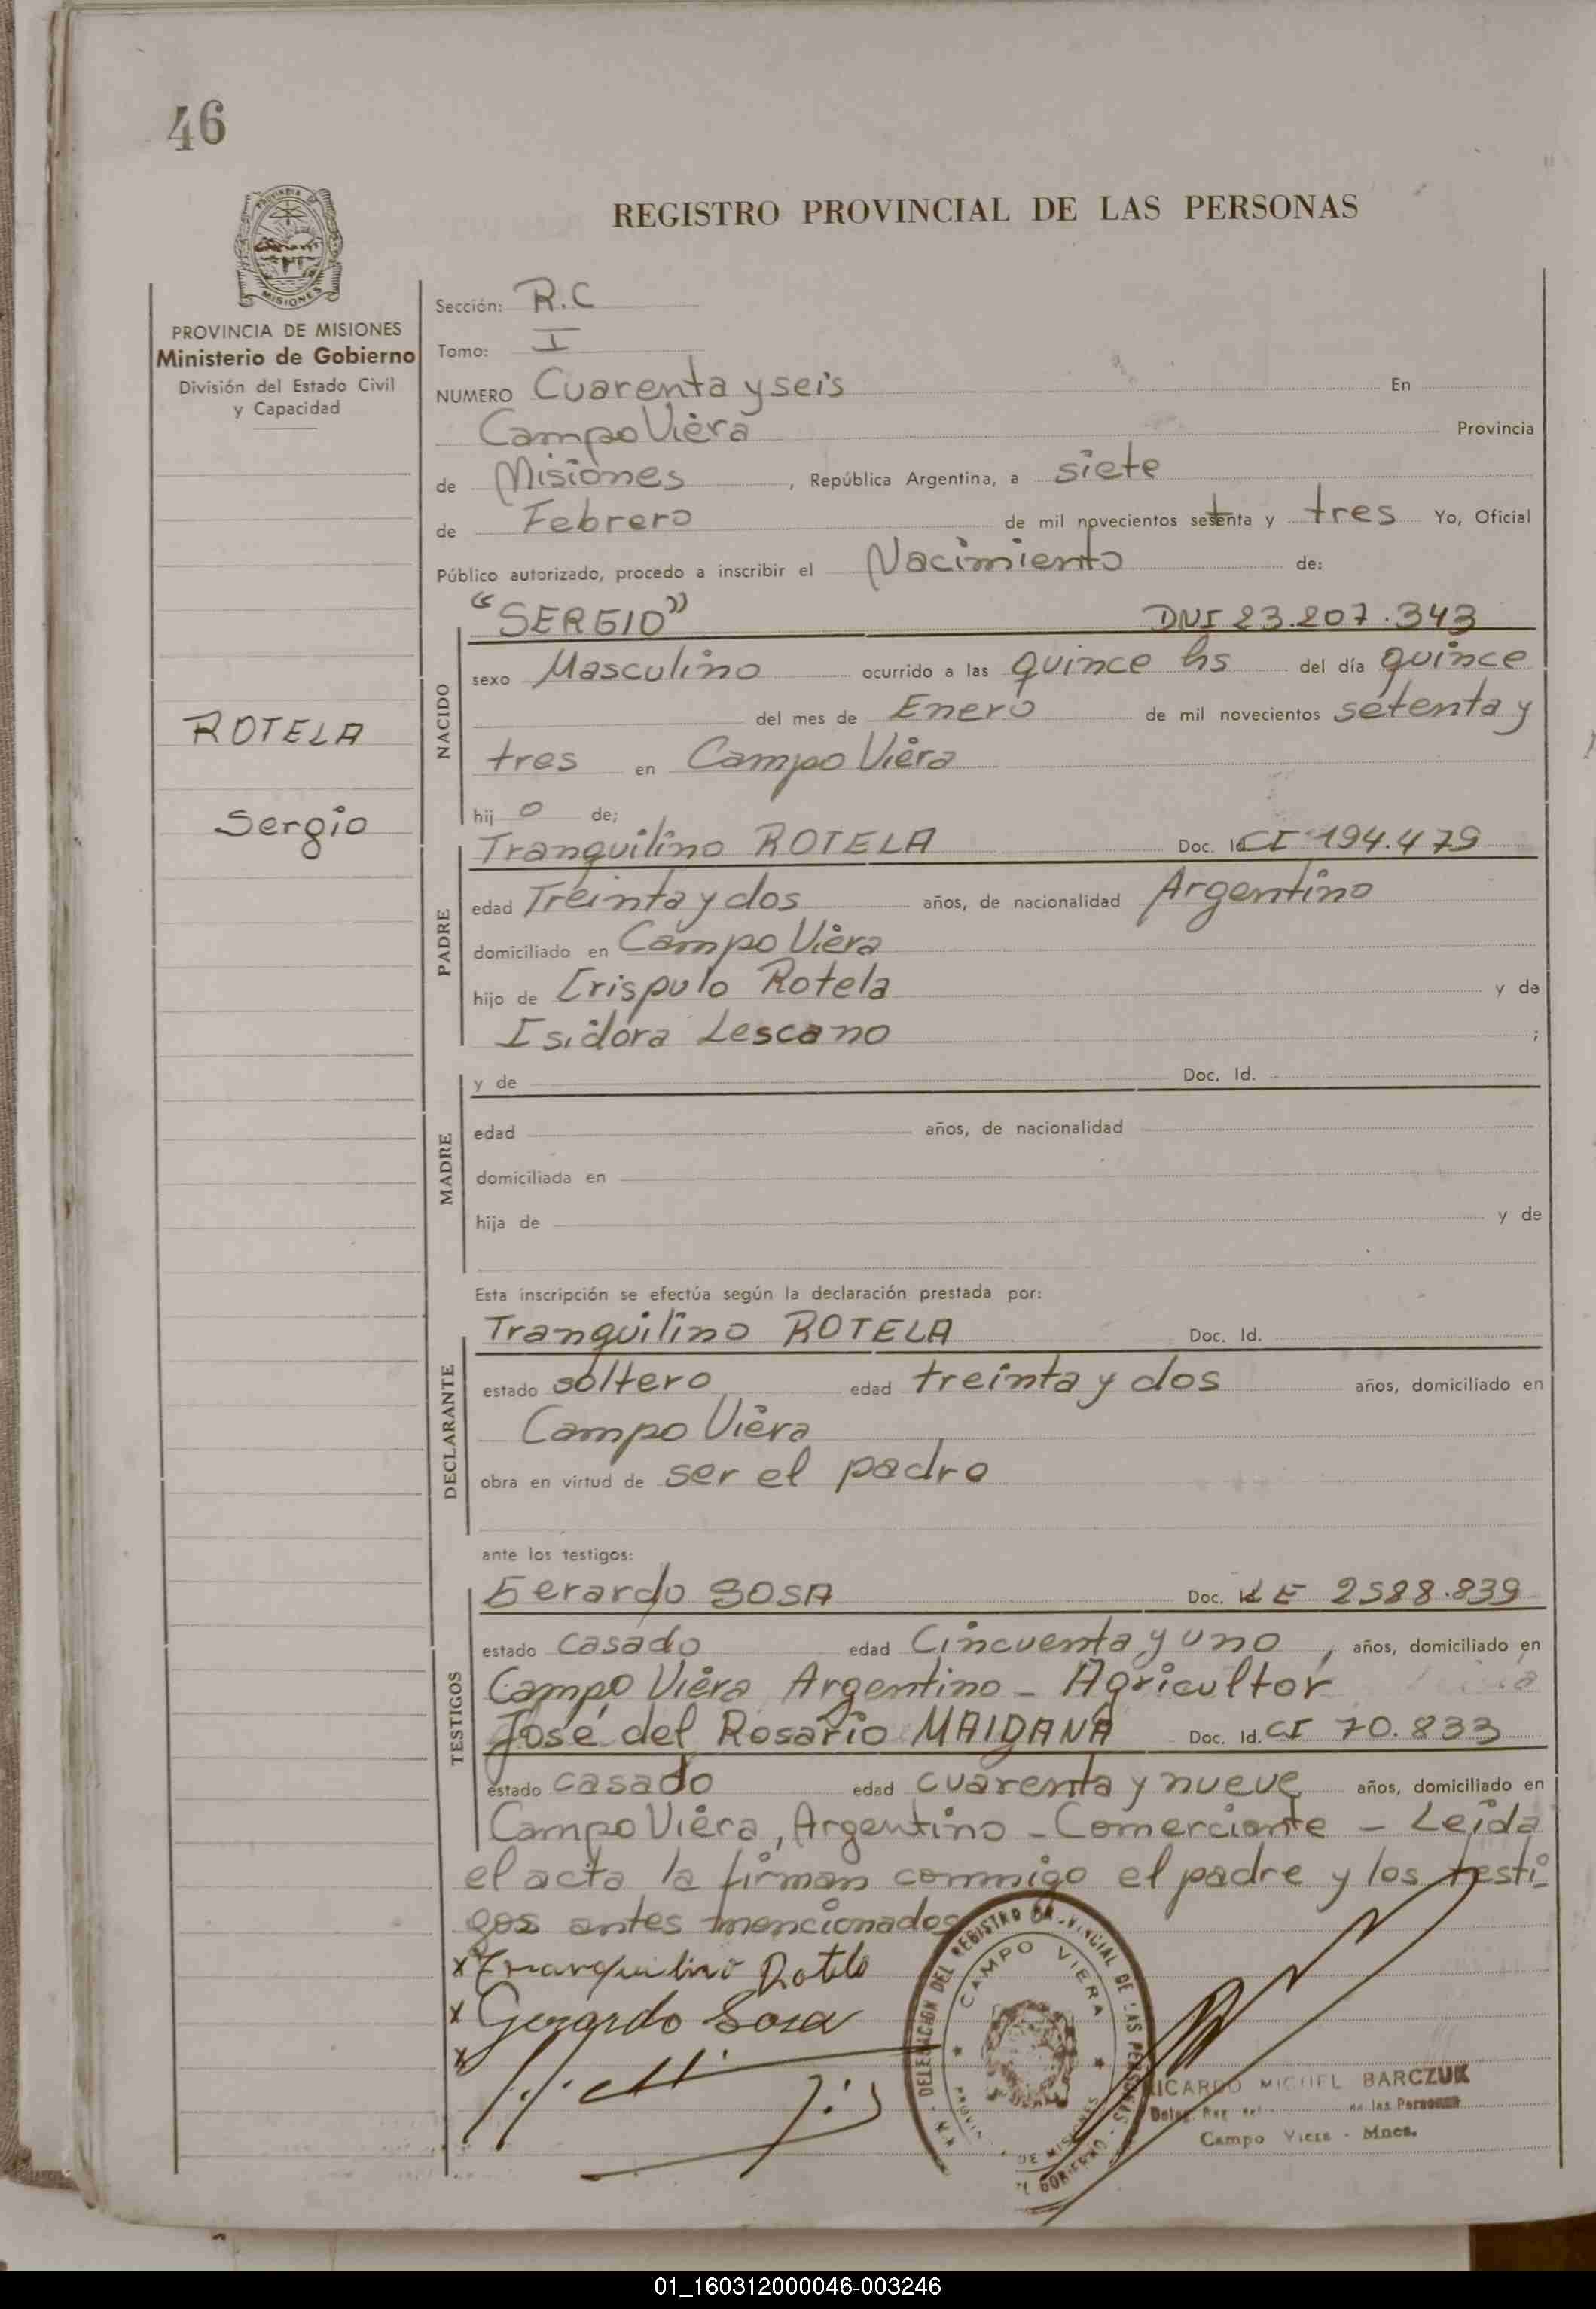 46
REGISTRO PROVINCIAL DE LAS PERSONAS
PROVINCIA DE MISIONES
Ministerio de Gobierno
División del Estado Civil
y Capacidad
ROTELA
Sergio
Sección: R.C
Tomo: I
NUMERO Cuarenta y seis En
Campo Viera Provincia
de Misiones, República Argentina, a siete
de Febrero de mil novecientos setenta y tres Yo, Oficial
Público autorizado, procedo a inscribir el Nacimiento de:
"SERGIO" DNI 23.207.343
NACIDO
sexo Masculino ocurrido a las quince hs del día quince
del mes de Enero de mil novecientos setenta y
tres en Campo Viera
hijo de;
Tranquilino ROTELA Doc. Id CI 194.479
PADRE
edad Treinta y dos años, de nacionalidad Argentino
domiciliado en Campo Viera
hijo de Crispulo Rotela y de
Isidora Lescano ;
MADRE
y de Doc. Id.
edad años, de nacionalidad
domiciliada en
hija de y de
Esta inscripción se efectúa según la declaración prestada por:
Tranquilino ROTELA Doc. Id.
DECLARANTE
estado soltero edad treinta y dos años, domiciliado en
Campo Viera
obra en virtud de ser el padre
ante los testigos:
Gerardo SOSA Doc. Id LE 2588.839
TESTIGOS
estado casado edad Cincuenta y uno, años, domiciliado en
Campo Viera Argentino - Agricultor
José del Rosario MAIDANA Doc. Id. CI 70.833
estado casado edad cuarenta y nueve años, domiciliado en
Campo Viera, Argentino - Comerciante - Leida
el acta la firman conmigo el padre y los testi-
gos antes mencionados
x Tranquilino Rotela
x Gerardo Sosa
x
DELEGACION DEL REGISTRO PROVINCIAL DE LAS PERSONAS
CAMPO VIERA
DE MISIONES
RICARDO MIGUEL BARCZUK
de las Personas
Campo Viera - Mnes.
01_160312000046-003246